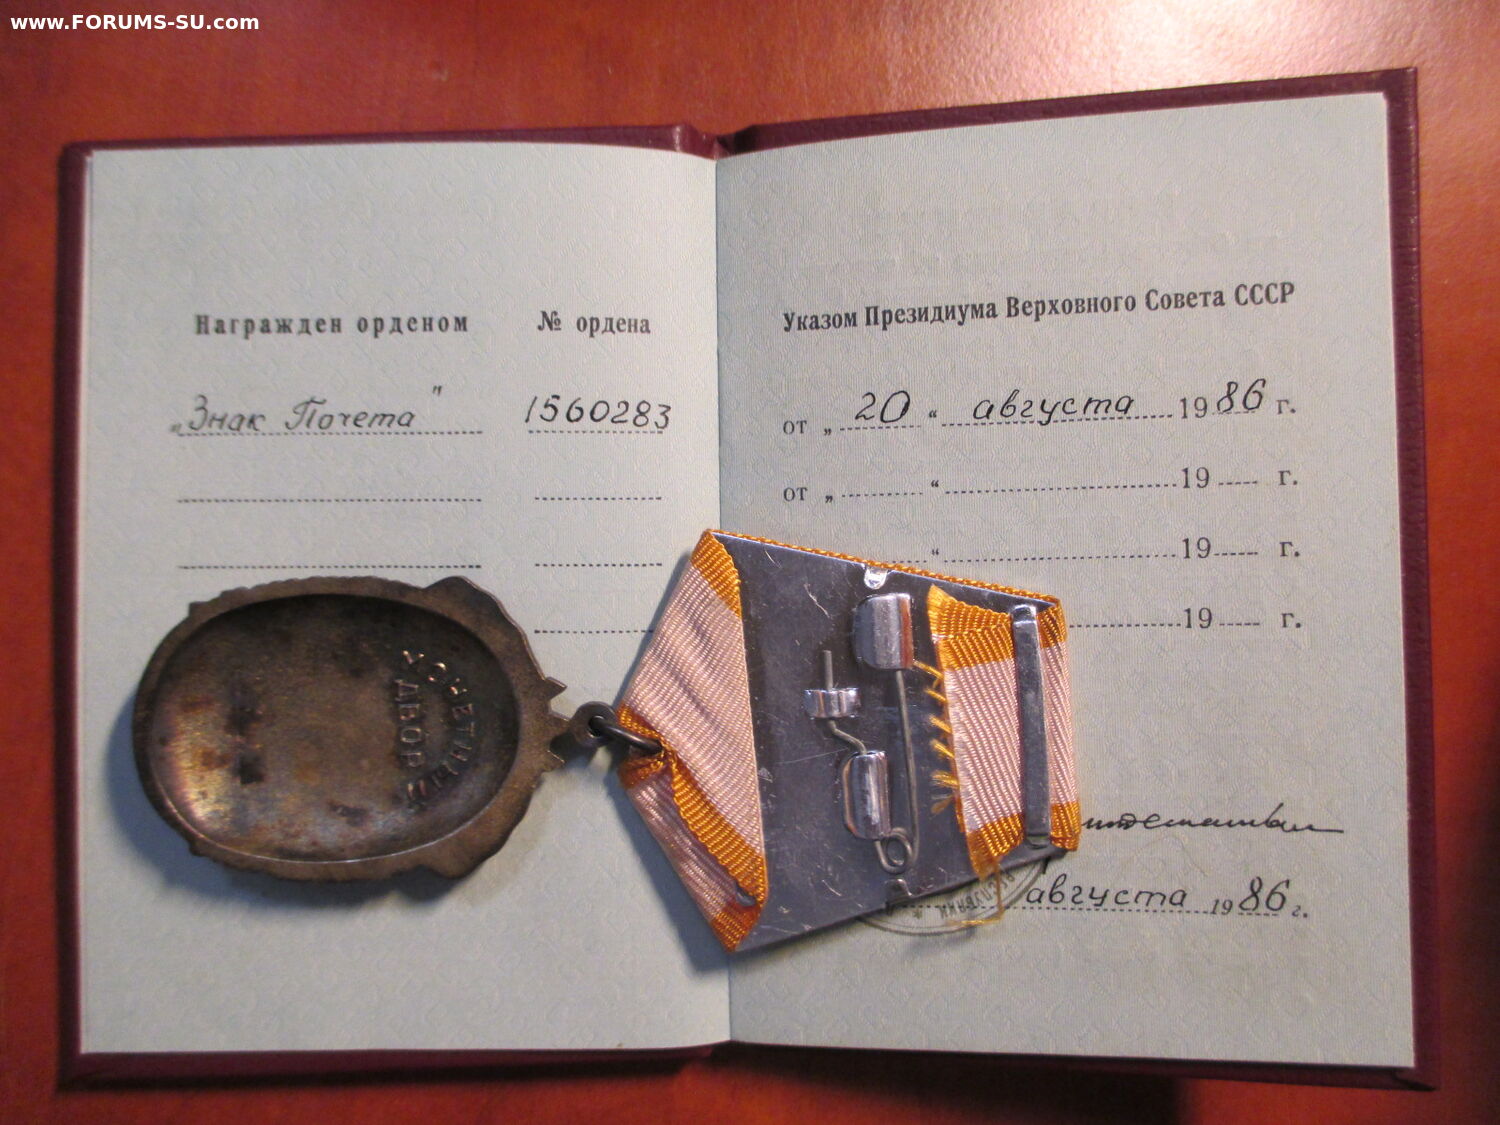 www.FORUMS-SU.com
Награжден орденом № ордена
„Знак Почета" 1560283
Указом Президиума Верховного Совета СССР
от „ 20 “ августа 1986 г.
от „ “ 19 г.
“ 19 г.
19 г.
августа 1986 г.
МОНЕТНЫЙ
ДВОР